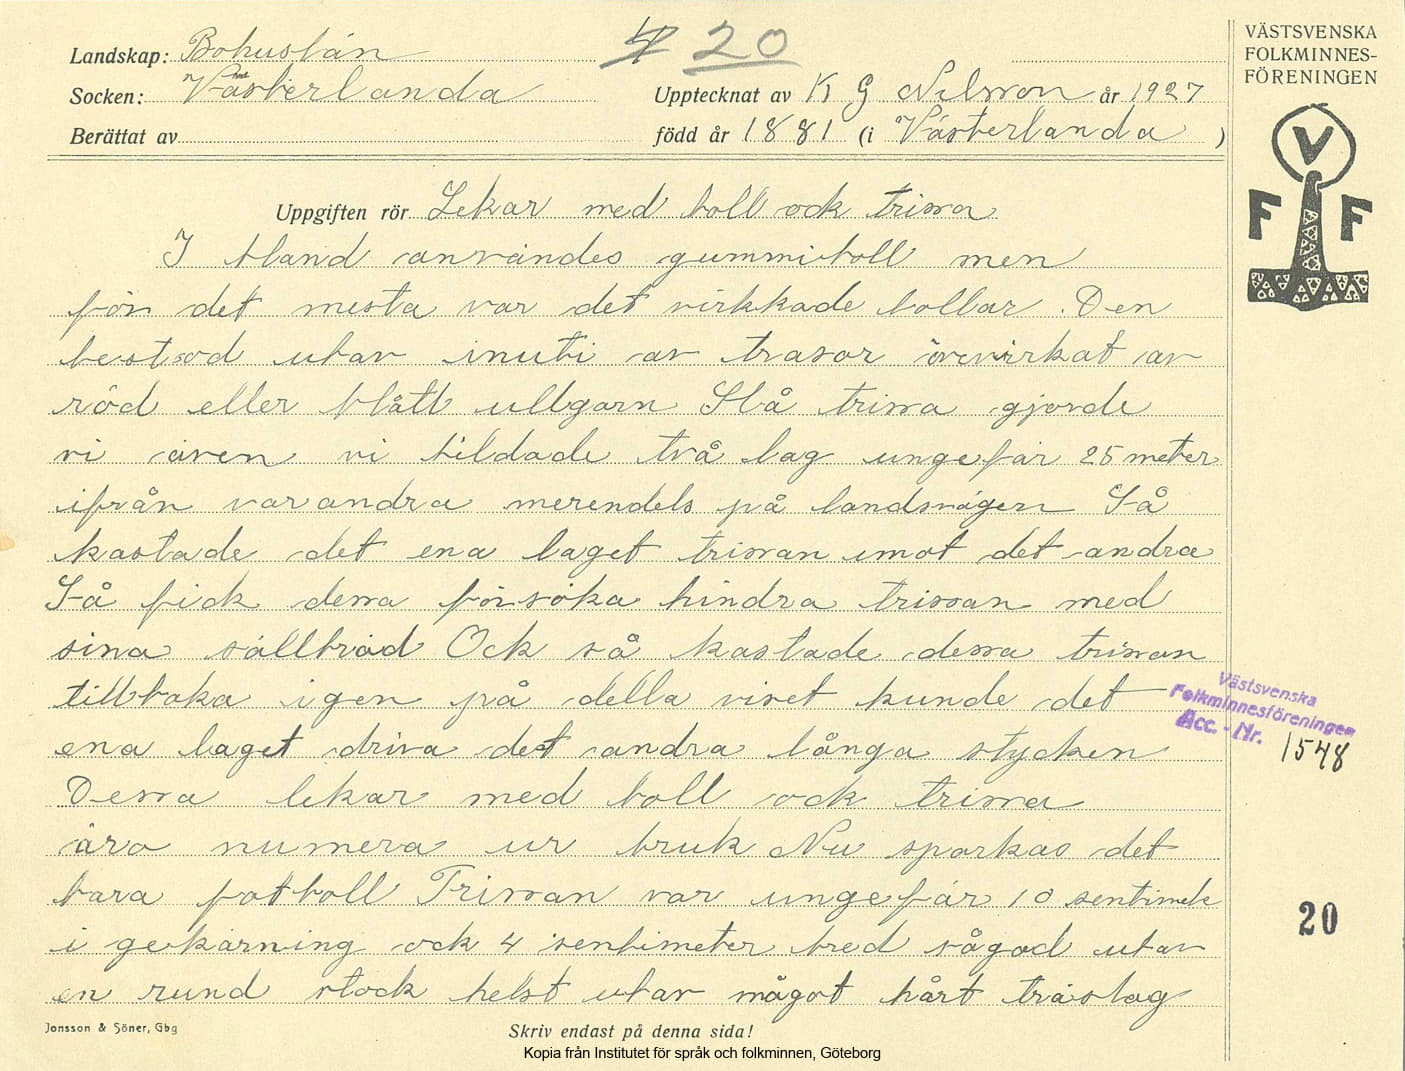 Landskap: Bohuslän
Socken: Västerlanda
Berättat av
20
Upptecknat av K G Nilsson år 1927
född år 1881 (i Västerlanda )
VÄSTSVENSKA
FOLKMINNES-
FÖRENINGEN
V
F F
Uppgiften rör Lekar med boll ock trissa
I bland användes gummiboll men
för det mesta var det virkkade bollar. Den
bestod utav inuti av trasor övervirkat av
röd eller blått ullgarn Slå trissa gjorde
vi även vi bildade två lag ungefär 25 meter
ifrån varandra merendels på landsvägen Så
kastade det ena laget trissan imot det andra
Så fick dessa försöka hindra trissan med
sina sållbräd Ock så kastade dessa trissan
tillbaka igen på detta viset kunde det
ena laget driva det andra långa stycken
Dessa lekar med boll ock trissa
äro numera ur bruk Nu sparkas det
bara fotboll Trissan var ungefär 10 sentimete
i genkärning ock 4 sentimeter bred sågad utav
en rund stock helst utav något hårt träslag
Västsvenska
Folkminnesföreningen
Acc. - Nr. 1548
20
Jonsson & Söner, Gbg
Skriv endast på denna sida!
Kopia från Institutet för språk och folkminnen, Göteborg